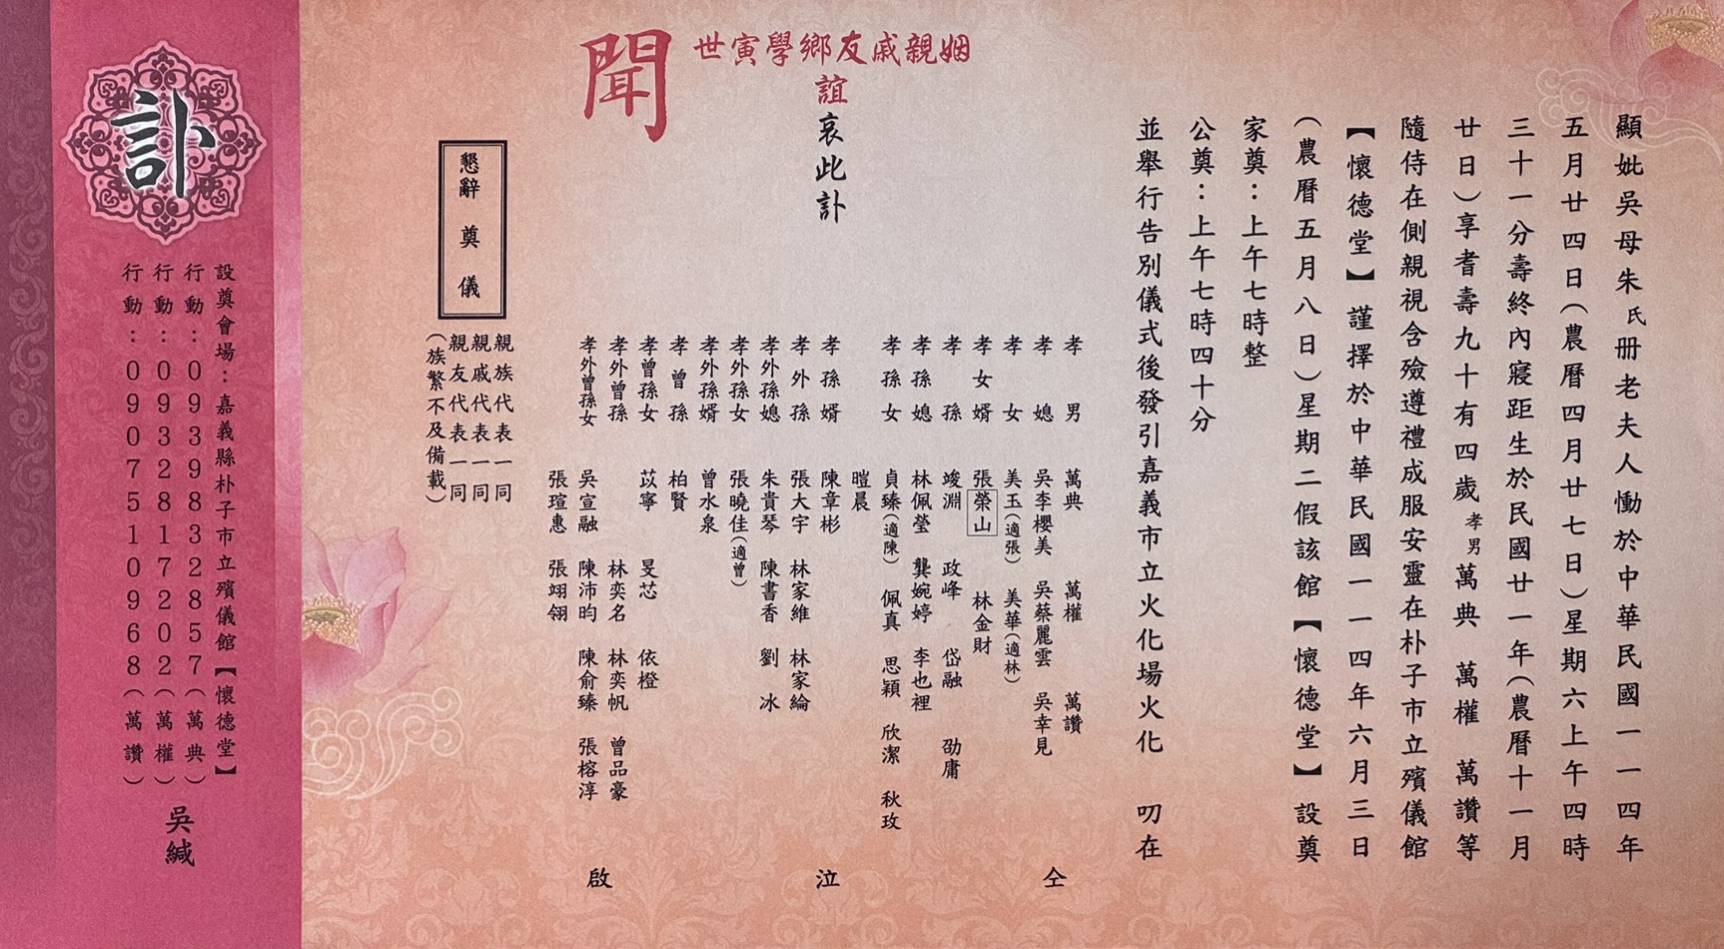 顯妣吳母朱氏册老夫人慟於中華民國一一四年
五月廿四日（農曆四月廿七日）星期六上午四時
三十一分壽終內寢距生於民國廿一年（農曆十一月
廿日）享耆壽九十有四歲孝男萬典　萬權　萬讚等
隨侍在側親視含殮遵禮成服安靈在朴子市立殯儀館
【懷德堂】謹擇於中華民國一一四年六月三日
（農曆五月八日）星期二假該館【懷德堂】設奠
家奠：上午七時整
公奠：上午七時四十分
並舉行告別儀式後發引嘉義市立火化場火化　叨在
姻親戚友鄉學寅世
誼哀此訃
聞
孝男　萬典　萬權　萬讚
孝媳　吳李櫻美　吳蔡麗雲　吳幸見
孝女　美玉（適張）　美華（適林）
孝女婿　張榮山　林金財
孝孫　竣淵　政峰　岱融　劭庸
孝孫媳　林佩瑩　龔婉婷　李也裡
孝孫女　貞臻（適陳）　佩真　思穎　欣潔　秋玫
暟晨
孝孫婿　陳章彬
孝外孫　張大宇　林家維　林家綸
孝外孫媳　朱貴琴　陳書香　劉冰
孝外孫女　張曉佳（適曾）
孝外孫婿　曾水泉
孝曾孫　柏賢
孝曾孫女　苡寧　旻芯　依橙
孝外曾孫　林奕名　林奕帆　曾品豪
孝外曾孫女　吳宣融　陳沛昀　陳俞臻　張榕淳
張瑄惠　張翊翎
仝
泣
啟
親族代表一同
親戚代表一同
親友代表一同
（族繁不及備載）
懇辭　奠　儀
訃
設奠會場：嘉義縣朴子市立殯儀館【懷德堂】
行動：0939832857（萬典）
行動：0932817202（萬權）
行動：0907510968（萬讚）
吳緘